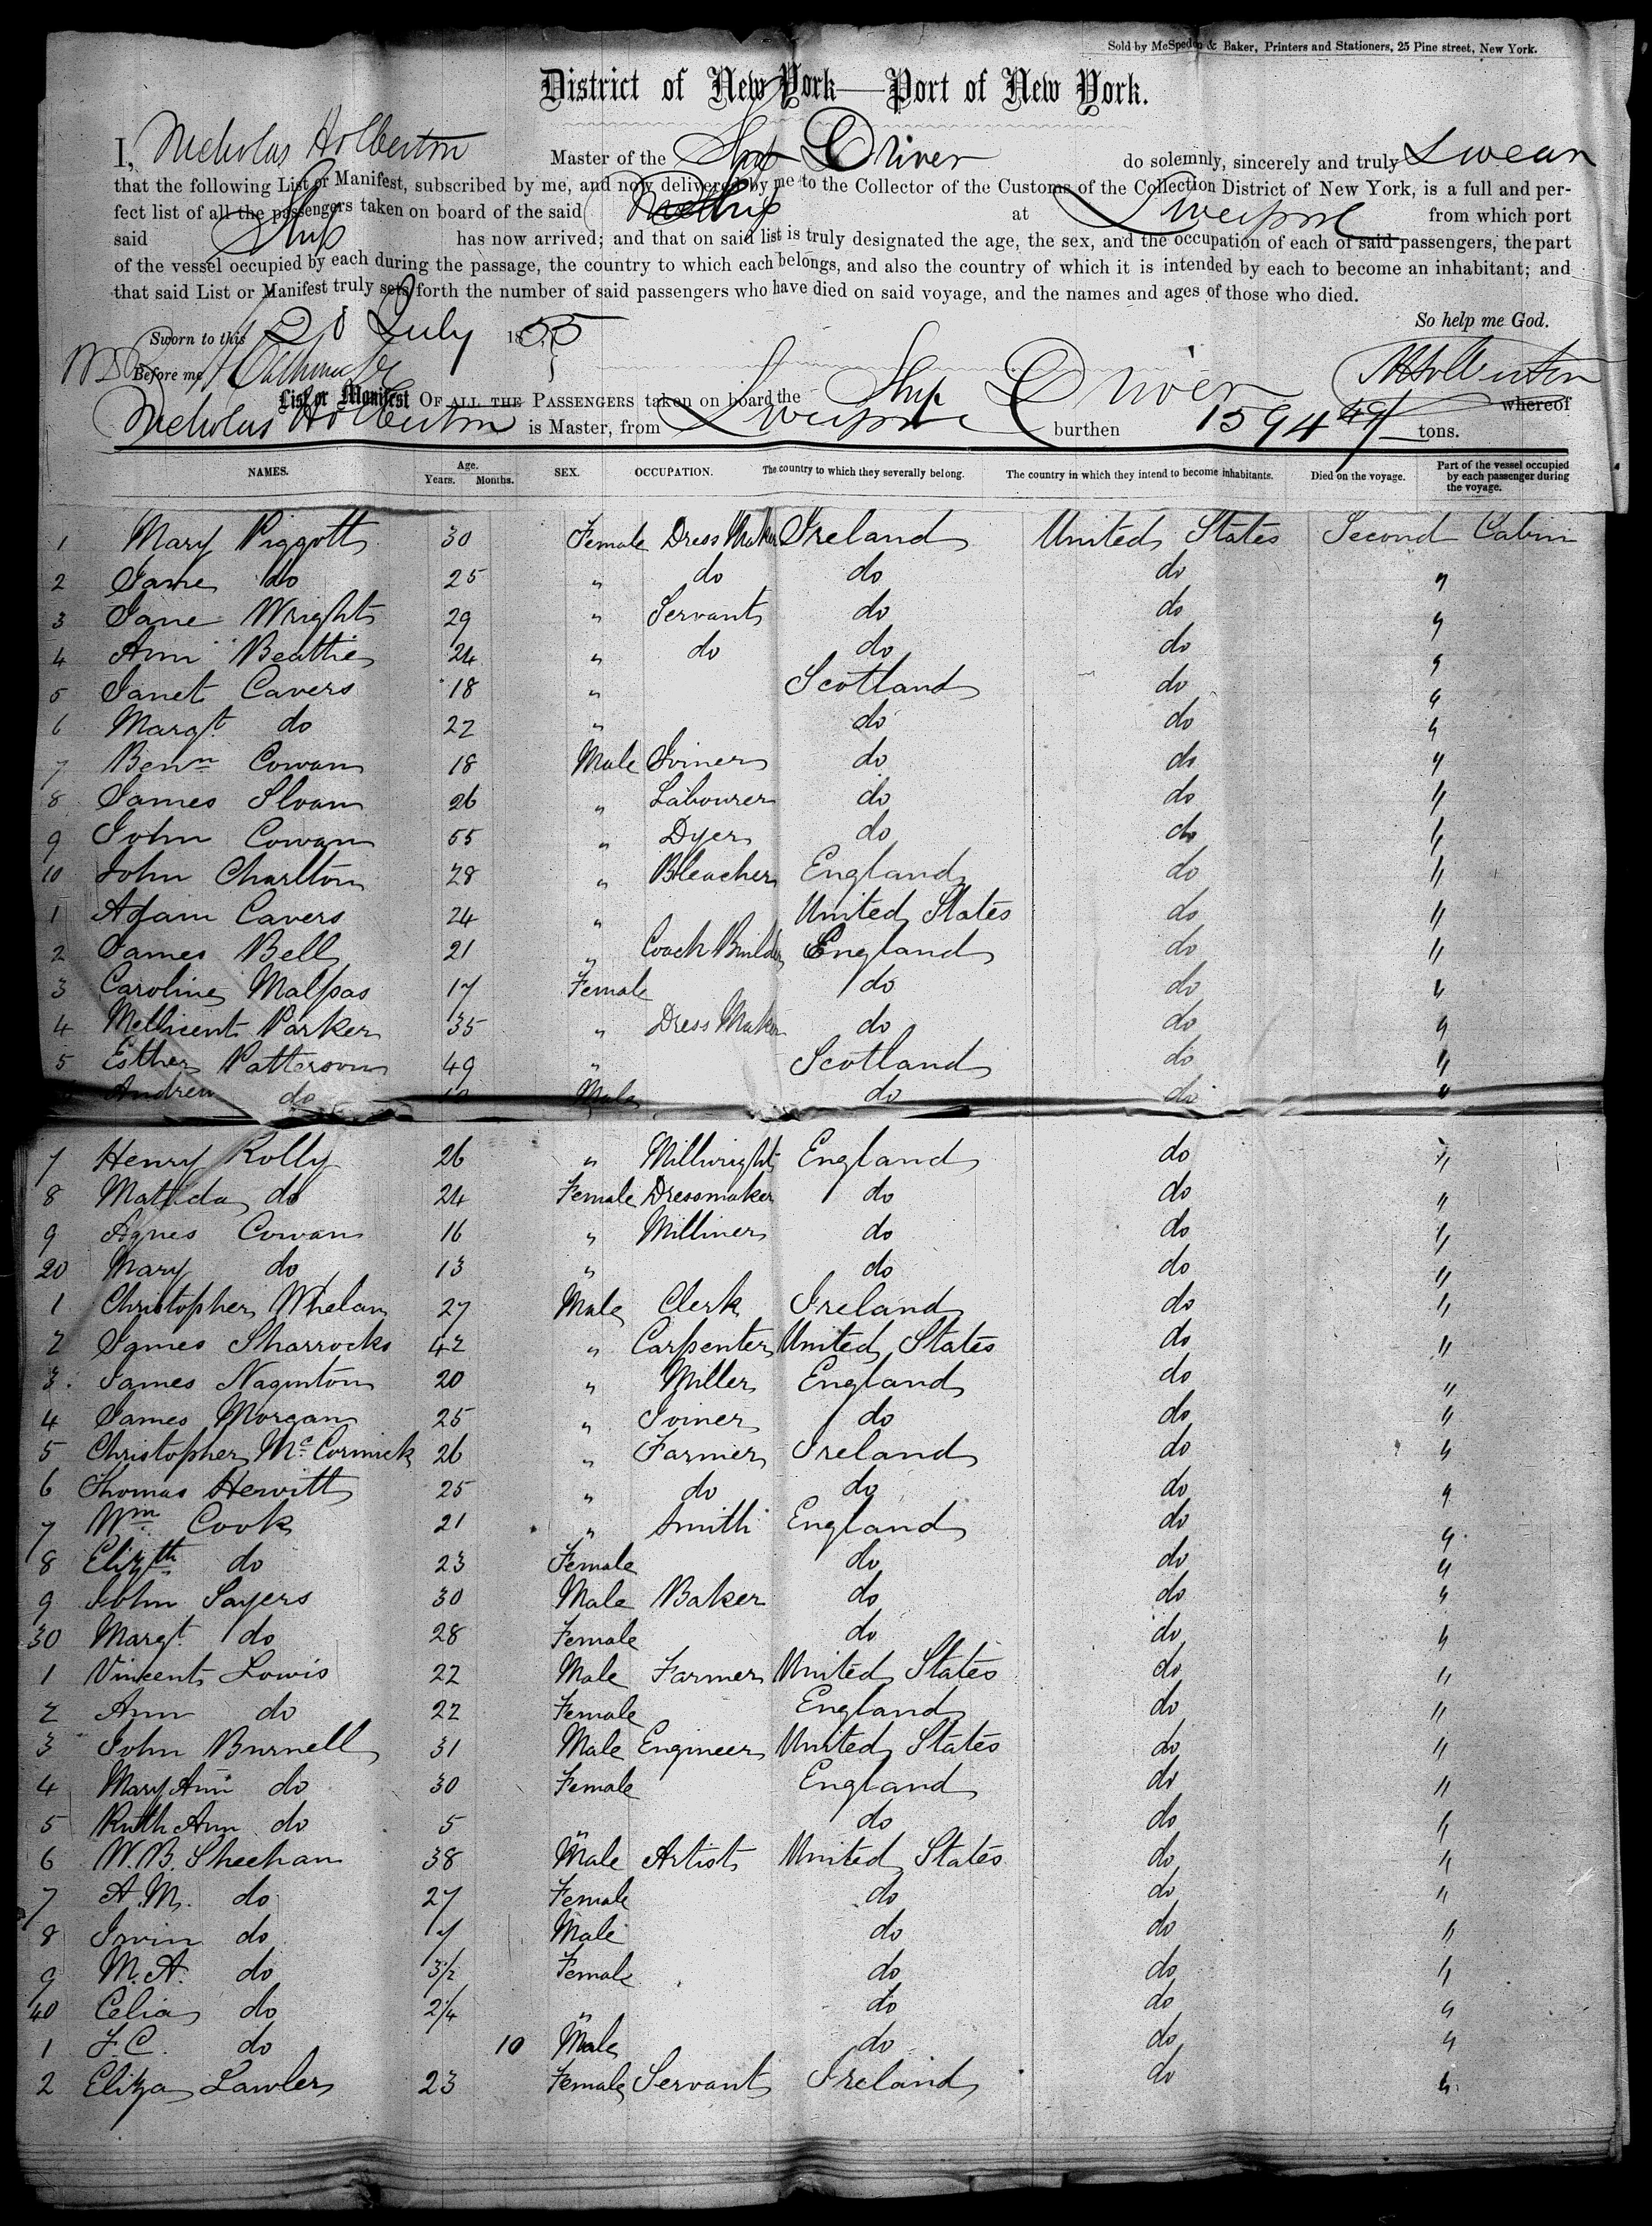 Sold by McSpedon & Baker, Printers and Stationers, 25 Pine street, New York.
District of New York—Port of New York.
I, Nicholas Holberton Master of the Ship Driver do solemnly, sincerely and truly Swear
that the following List or Manifest, subscribed by me, and now delivered by me to the Collector of the Customs of the Collection District of New York, is a full and per-
fect list of all the passengers taken on board of the said Ship at Liverpool from which port
said Ship has now arrived; and that on said list is truly designated the age, the sex, and the occupation of each of said passengers, the part
of the vessel occupied by each during the passage, the country to which each belongs, and also the country of which it is intended by each to become an inhabitant; and
that said List or Manifest truly sets forth the number of said passengers who have died on said voyage, and the names and ages of those who died.
So help me God.
Sworn to this 20 July 1855
Before me NHolberton
List or Manifest OF ALL THE PASSENGERS taken on board the Ship Driver whereof
Nicholas Holberton is Master, from Liverpool burthen 1594 49/ tons.
NAMES. Age. Years. Months. SEX. OCCUPATION. The country to which they severally belong. The country in which they intend to become inhabitants. Died on the voyage. Part of the vessel occupied by each passenger during the voyage.
1 Mary Piggott 30 Female Dress Maker Ireland United States Second Cabin
2 Jane do 25 " do do do "
3 Jane Wright 29 " Servant do do "
4 Ann Beattie 24 " do do do "
5 Janet Cavers 18 " Scotland do "
6 Margt do 22 " do do "
7 Benn Cowan 18 Male Joiner do do "
8 James Sloan 26 " Labourer do do "
9 John Cowan 55 " Dyer do do "
10 John Charlton 28 " Bleacher England do "
1 Adam Cavers 24 " United States do "
2 James Bell 21 " Coach Builder England do "
3 Caroline Malpas 17 Female do do "
4 Mellicent Parker 35 " Dress Maker do do "
5 Esther Patterson 49 " Scotland do "
Andrew do Male do do "
7 Henry Rolly 26 " Millwright England do "
8 Matilda do 24 Female Dressmaker do do "
9 Agnes Cowan 16 " Milliner do do "
20 Mary do 13 " do do "
1 Christopher Whelan 27 Male Clerk Ireland do "
2 James Sharrocks 42 " Carpenter United States do "
3 James Naginton 20 " Miller England do "
4 James Morgan 25 " Joiner do do "
5 Christopher McCormick 26 " Farmer Ireland do "
6 Thomas Hewitt 25 " do do do "
7 Wm Cook 21 " Smith England do "
8 Elizth do 23 Female do do "
9 John Sayers 30 Male Baker do do "
30 Margt do 28 Female do do "
1 Vincent Lowis 22 Male Farmer United States do "
2 Ann do 22 Female England do "
3 John Burnell 31 Male Engineer United States do "
4 Mary Ann do 30 Female England do "
5 Ruth Ann do 5 " do do "
6 W. B. Sheehan 38 Male Artist United States do "
7 A. M. do 27 Female do do "
8 Irvin do 7 Male do do "
9 M. A. do 3½ Female do do "
40 Celia do 2¼ " do do "
1 F. C. do 10 Male do do "
2 Eliza Lawler 23 Female Servant Ireland do "